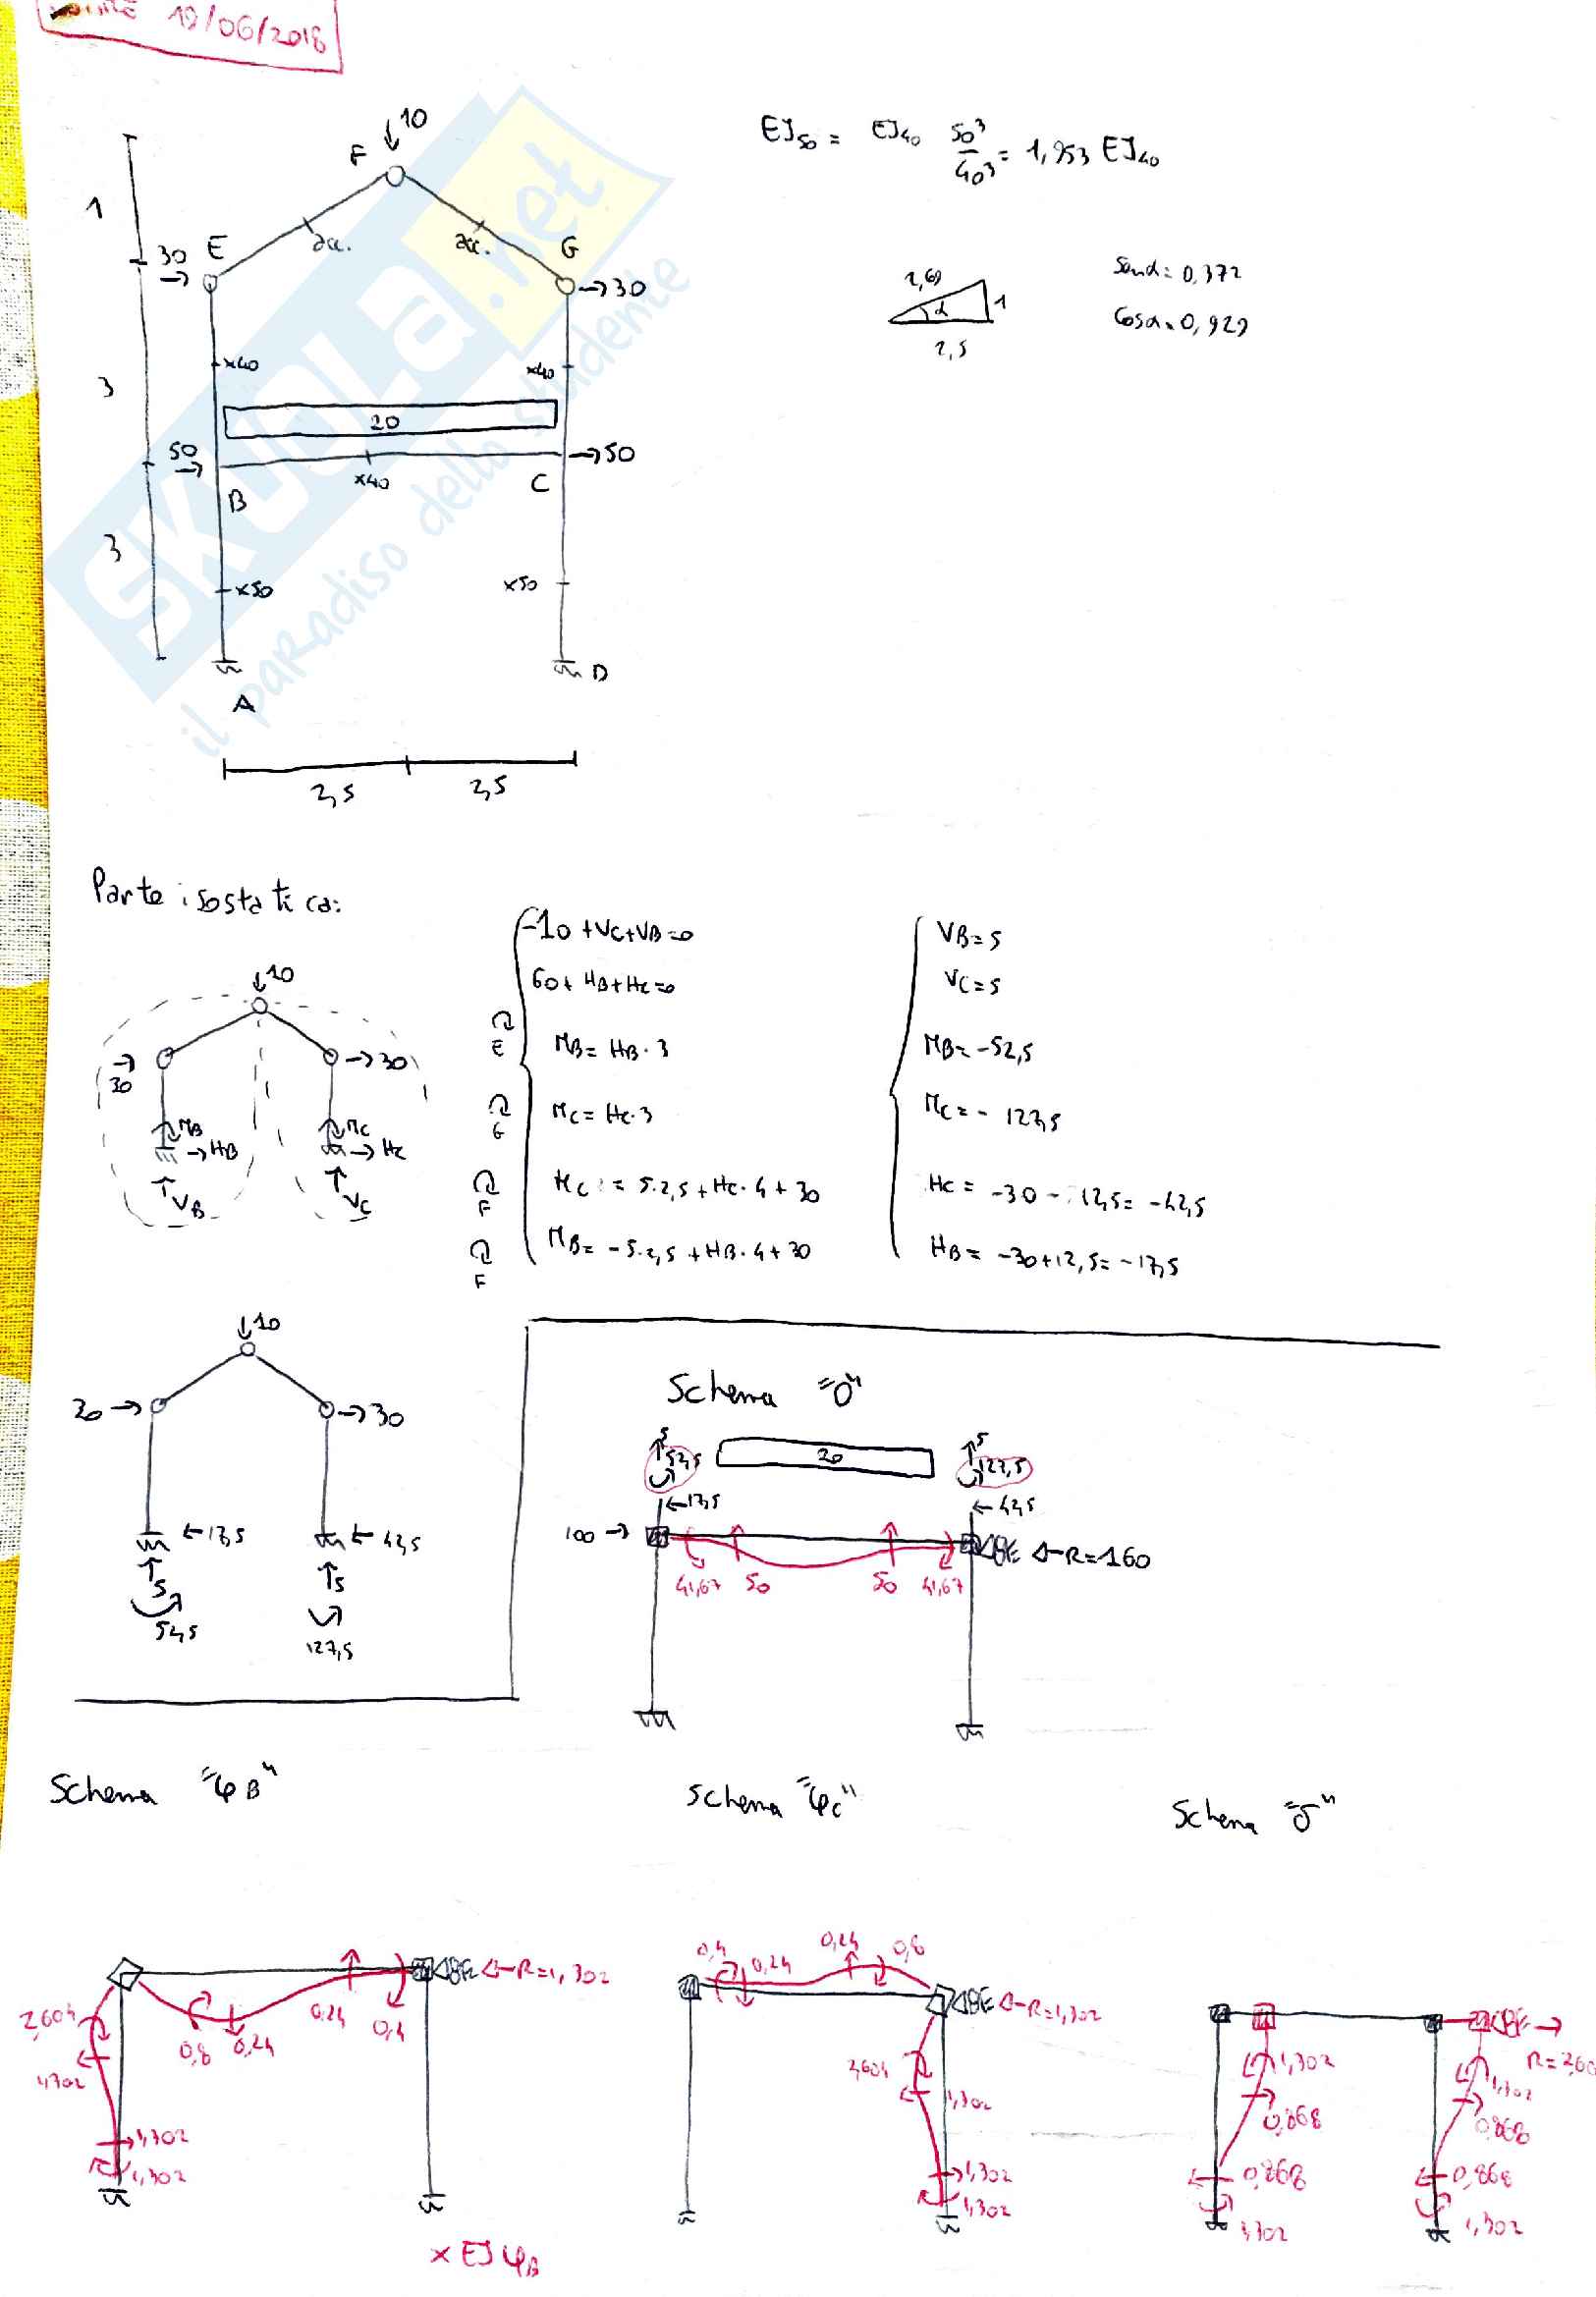 19/06/2018
10
F
EJ50 = EJ40 50³/40³ = 1,953 EJ40
1
30
E
G
30
2,69
α
1
2,5
Senα = 0,372
Cosα = 0,929
x40
x40
3
20
50
50
B
x40
C
3
x50
x50
A
D
2,5
2,5
SKUOLA.net
il paradiso dello studente
Parte isostatica:
-10 + VC + VB = 0
VB = 5
60 + HB + HC = 0
VC = 5
E
MB = HB · 3
MB = -52,5
G
MC = HC · 3
MC = - 127,5
F
MC = 5·2,5 + HC · 4 + 30
HC = -30 - 12,5 = -42,5
F
MB = -5·2,5 + HB · 4 + 30
HB = -30 + 12,5 = -17,5
10
30
30
MB
HB
VB
MC
HC
VC
10
30
30
17,5
42,5
5
5
52,5
127,5
Schema "0"
5
52,5
20
5
127,5
17,5
42,5
100
R=160
41,67
50
50
41,67
Schema "φB"
Schema "φC"
Schema "δ"
R=1,302
2,604
0,8
0,24
0,24
0,4
1,302
1,302
1,302
x EJ φB
0,4
0,24
0,24
0,8
R=1,302
2,604
1,302
1,302
1,302
1,302
0,868
0,868
1,302
1,302
0,868
0,868
1,302